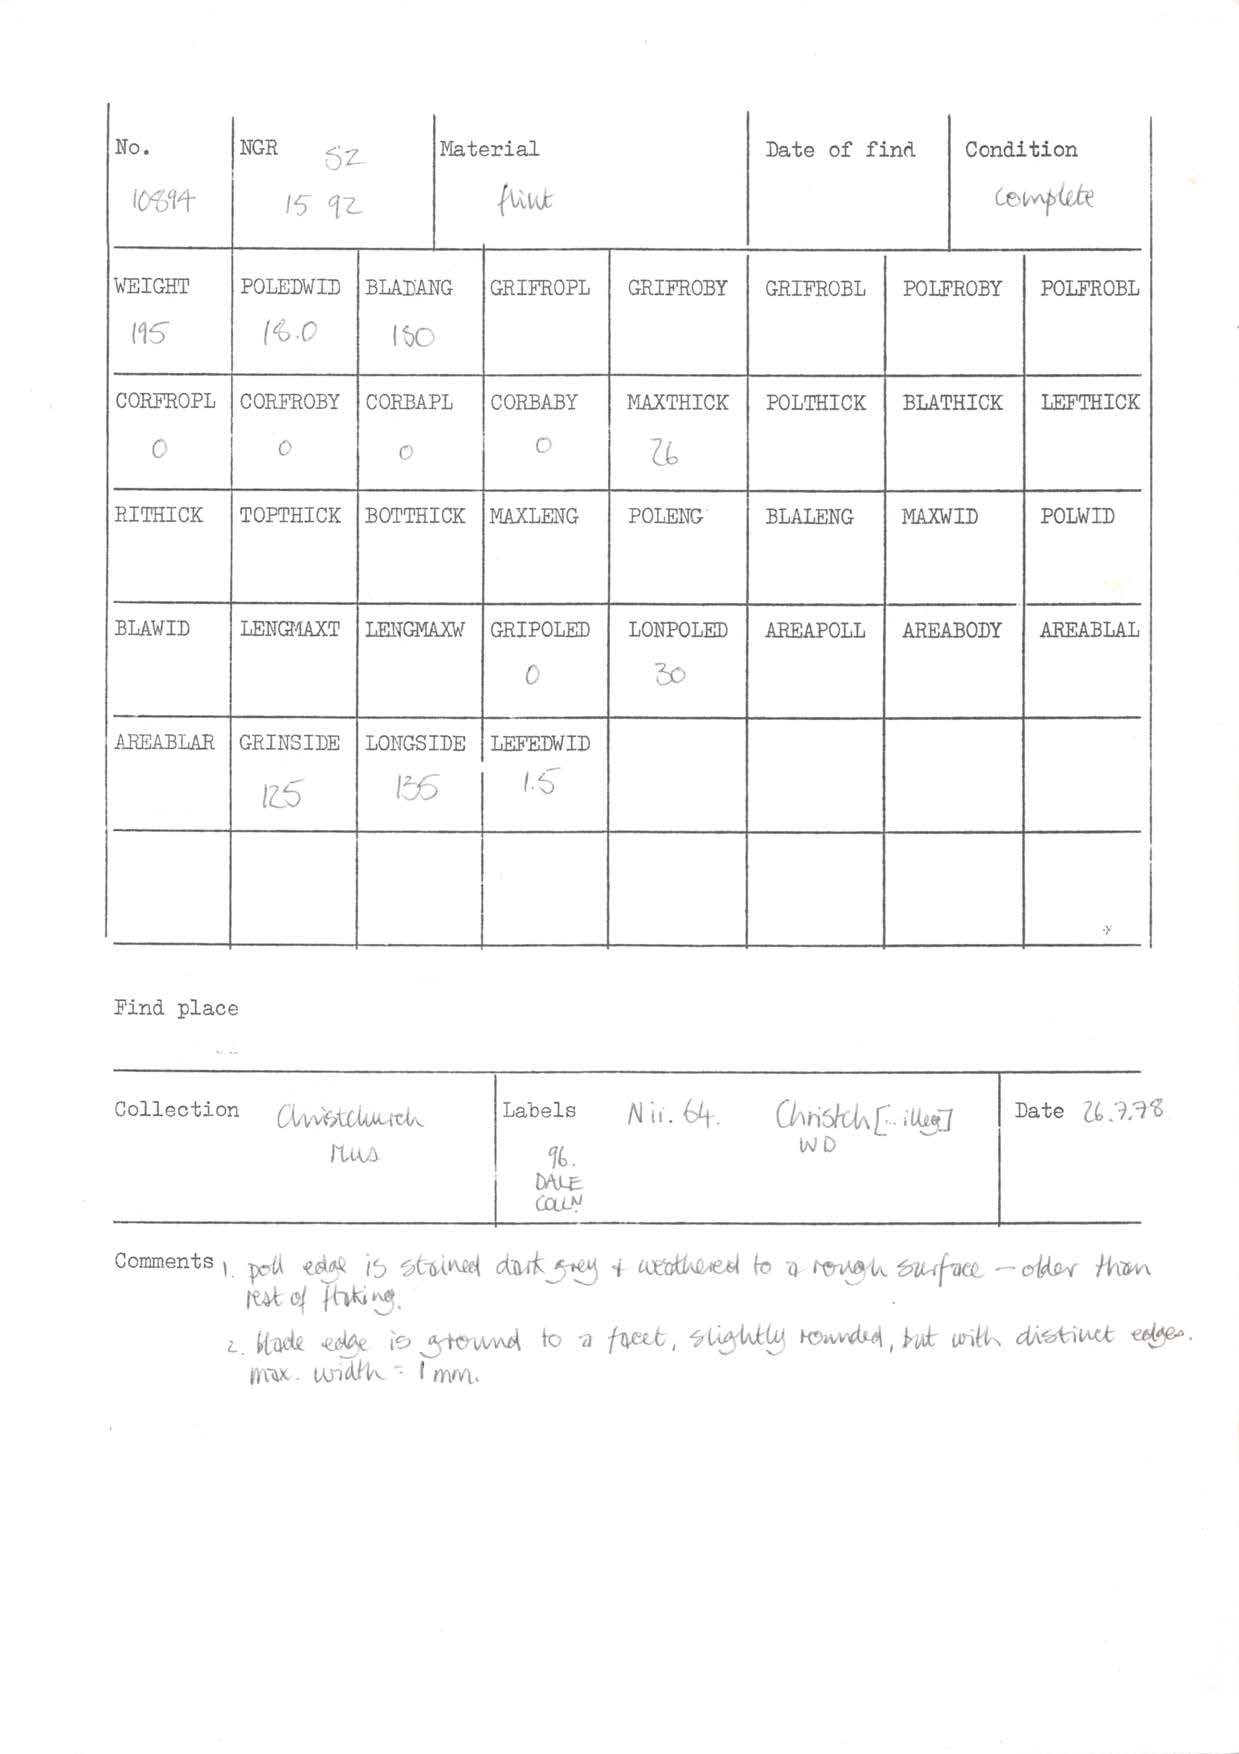 No. NGR SZ Material Date of find Condition
10894 15 92 flint complete
WEIGHT POLEDWID BLADANG GRIFROPL GRIFROBY GRIFROBL POLFROBY POLFROBL
195 18.0 180
CORFROPL CORFROBY CORBAPL CORBABY MAXTHICK POLTHICK BLATHICK LEFTHICK
0 0 0 0 26
RITHICK TOPTHICK BOTTHICK MAXLENG POLENG BLALENG MAXWID POLWID
BLAWID LENGMAXT LENGMAXW GRIPOLED LONPOLED AREAPOLL AREABODY AREABLAL
0 30
AREABLAR GRINSIDE LONGSIDE LEFEDWID
125 135 1.5
Find place
Collection Christchurch Labels Nii. 64. Christch[... illeg] Date 26.7.78
Mus 96. WD
DALE
COLLN
Comments 1. poll edge is stained dark grey + weathered to a rough surface — older than
rest of flaking.
2. blade edge is ground to a facet, slightly rounded, but with distinct edges.
max. width = 1 mm.